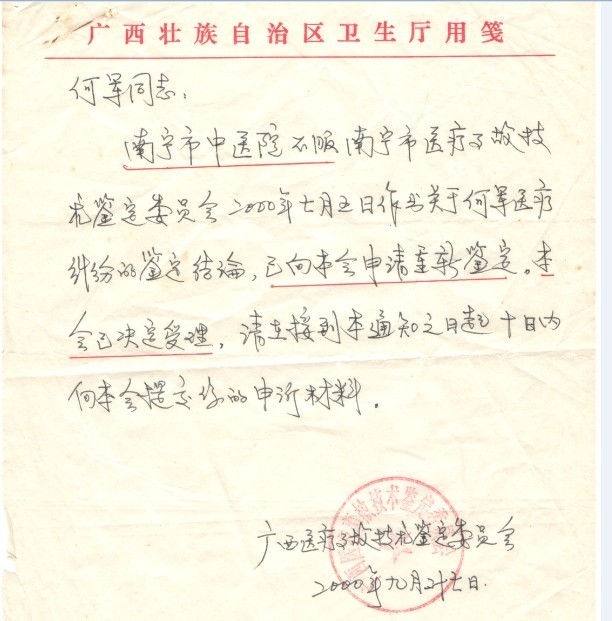 广西壮族自治区卫生厅用笺
何军同志:
南宁市中医院不服南宁市医疗事故技
术鉴定委员会2000年七月五日作出关于何军医疗
纠纷的鉴定结论,已向本会申请重新鉴定。本
会已决定受理,请在接到本通知之日起十日内
向本会提交你的申诉材料。
广西医疗事故技术鉴定委员会
2000年九月廿七日.